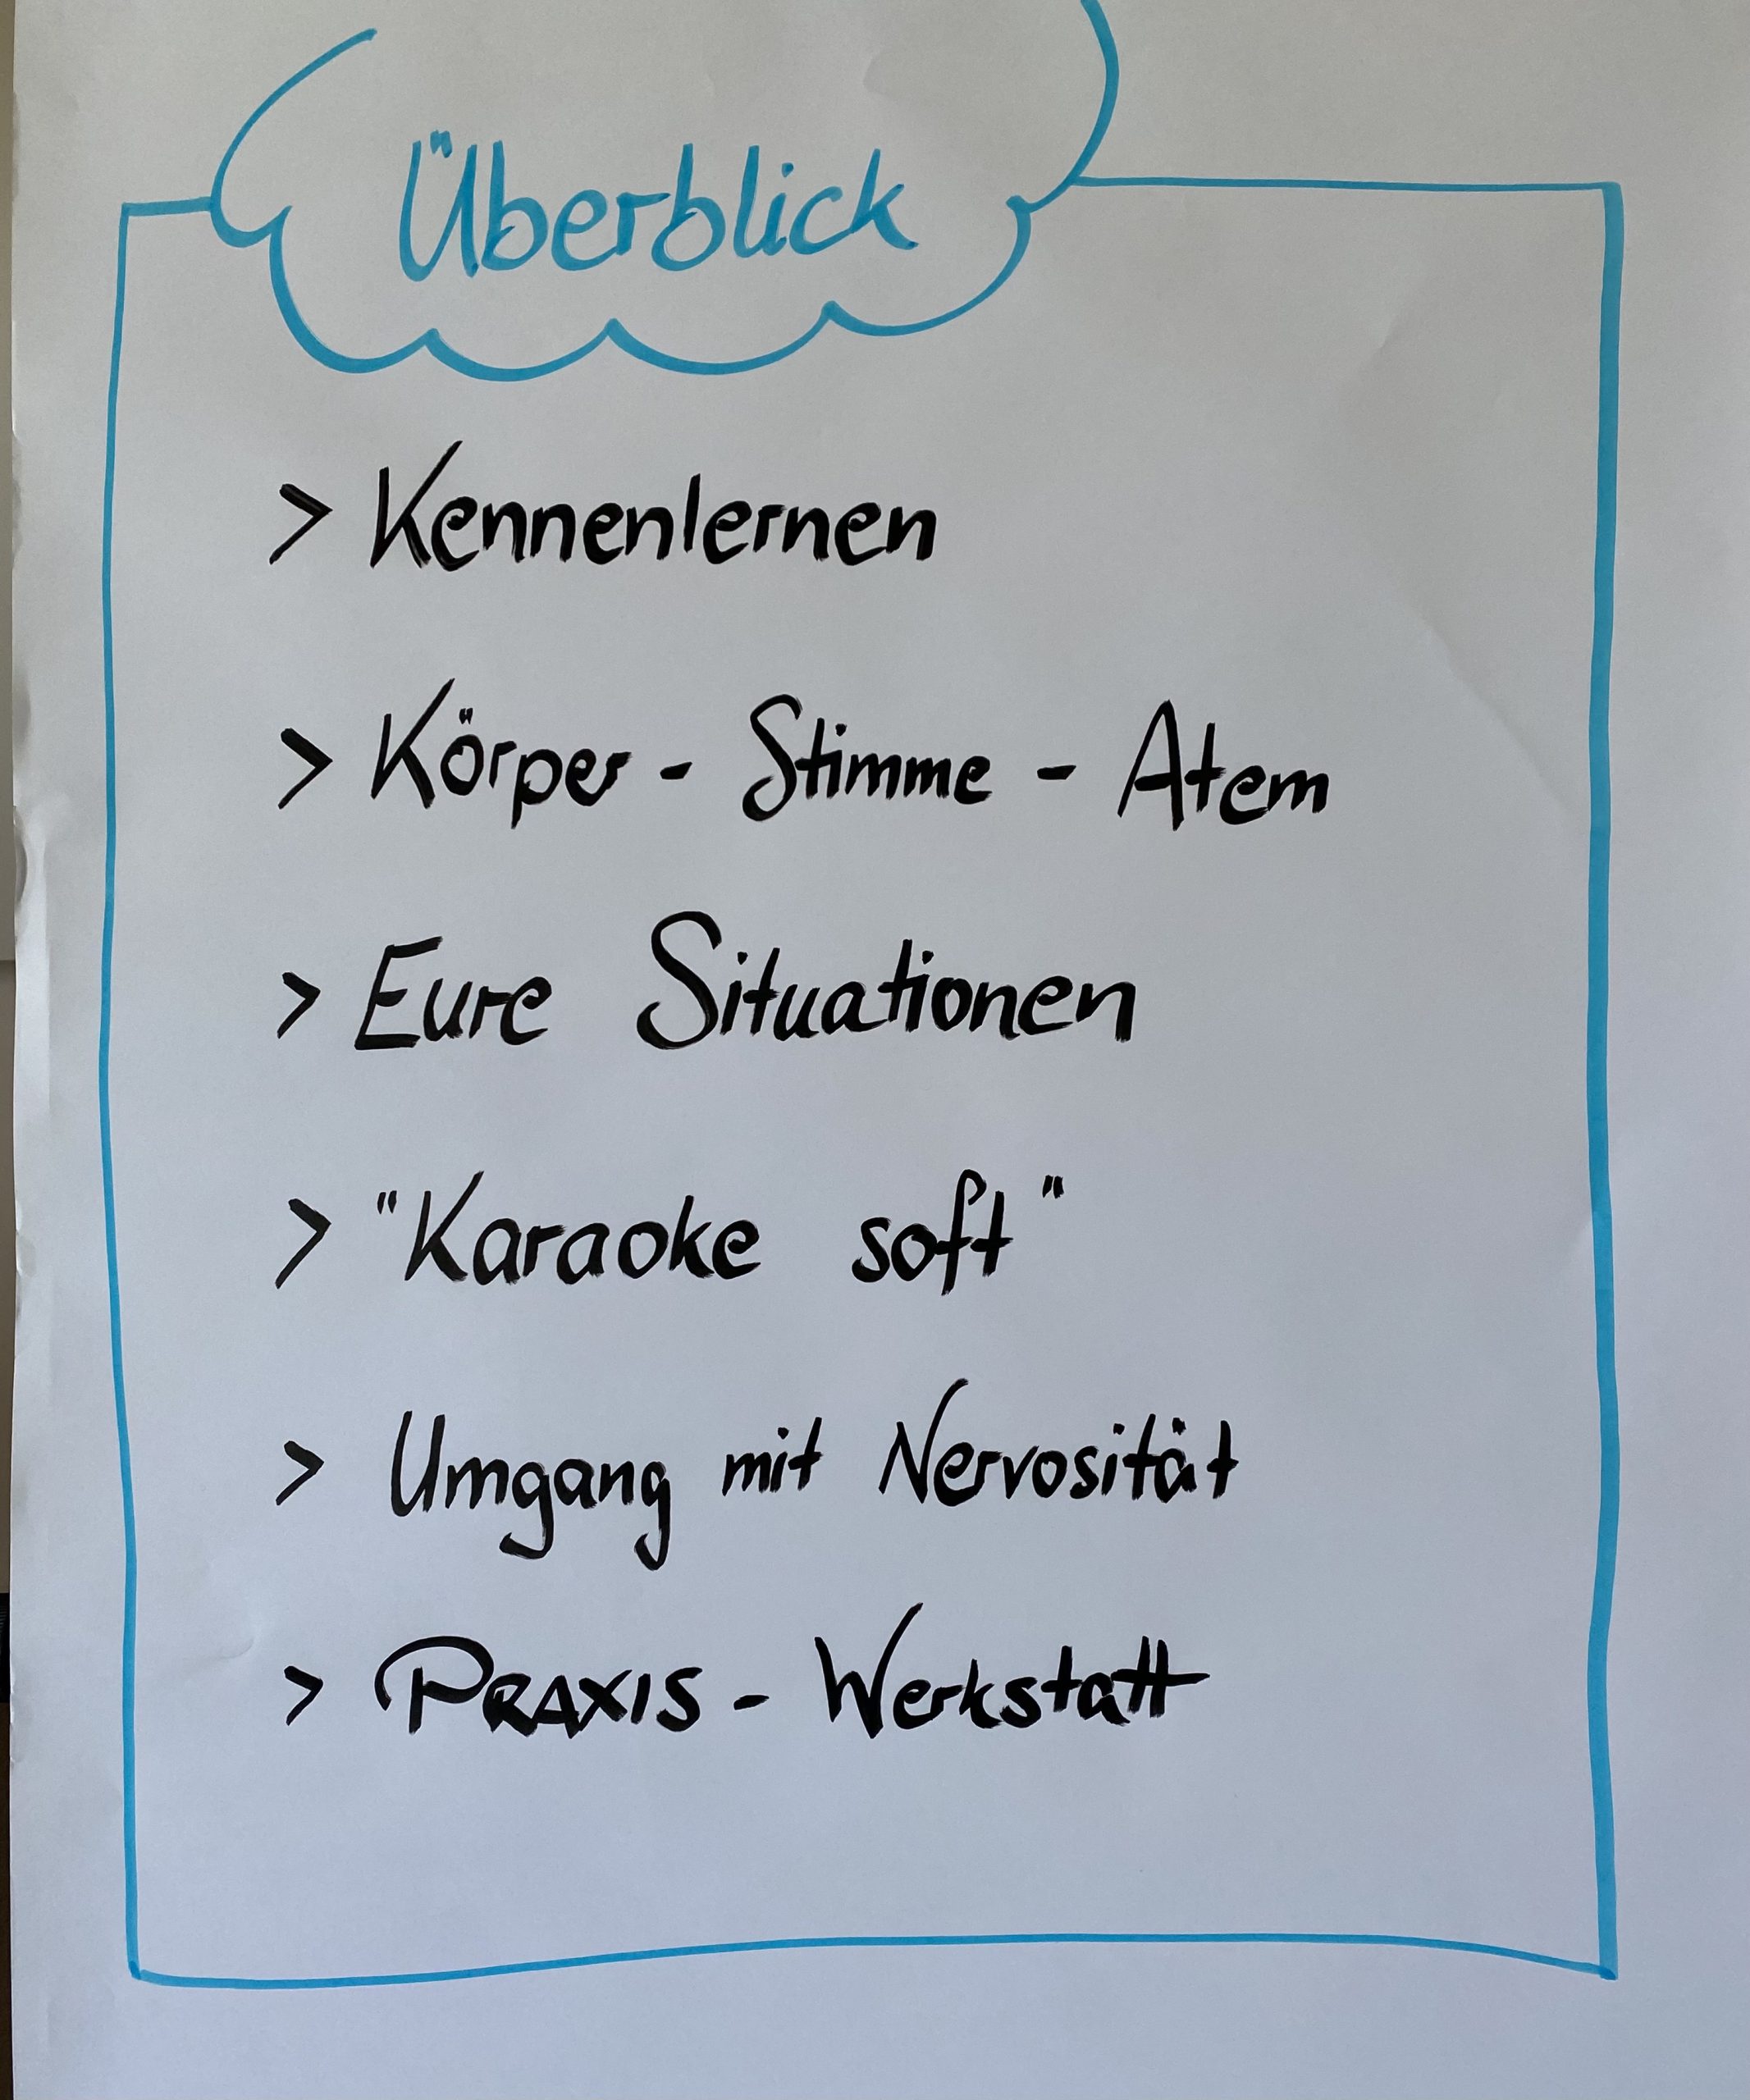 Überblick
> Kennenlernen
> Körper - Stimme - Atem
> Eure Situationen
> "Karaoke soft"
> Umgang mit Nervosität
> PRAXIS - Werkstatt